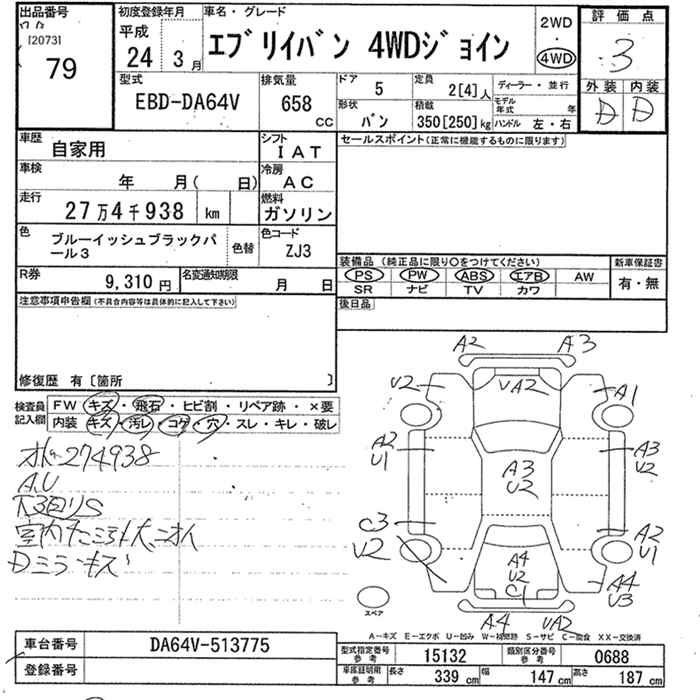 出品番号
[2073]
79
初度登録年月
平成
24 3月
車名・グレード
エブリイバン 4WDジョイン
2WD
・
4WD
評価点
3
外装 内装
D D
型式
EBD-DA64V
排気量
658 CC
ドア
5
定員
2[4]人
ディーラー・並行
形状
バン
積載
350[250]kg
モデル年式 年
ハンドル 左・右
車歴
自家用
シフト
IAT
車検
年 月( 日)
冷房
AC
走行
27万4千938 km
燃料
ガソリン
色
ブルーイッシュブラックパール3
色替
色コード
ZJ3
R券
9,310円
名変通知期限
月 日
セールスポイント(正常に機能するものに限ります)
装備品(純正品に限り○をつけてください)
PS PW ABS エアB AW
SR ナビ TV カワ
新車保証書
有・無
後日品
注意事項申告欄(不具合内容等は具体的に記入して下さい)
修復歴 有〔箇所 〕
検査員記入欄
FW キズ・飛石・ヒビ割・リペア跡・×要
内装 キズ・汚レ・コゲ・穴・スレ・キレ・破レ
274938
A.U
Dミラーキズ
A2 A3
V2 VA2 A1
A2 U1
A3 U2
A3 U2
C3
V2
A2 U1
A4 U2 C1
A4 U3
A4 VA2
スペア
A－キズ E－エクボ U－凹み W－補修跡 S－サビ C－腐食 XX－交換済
車台番号
DA64V-513775
登録番号
型式指定番号参考
15132
類別区分番号参考
0688
車庫証明用参考
長さ 339 cm 幅 147 cm 高さ 187 cm